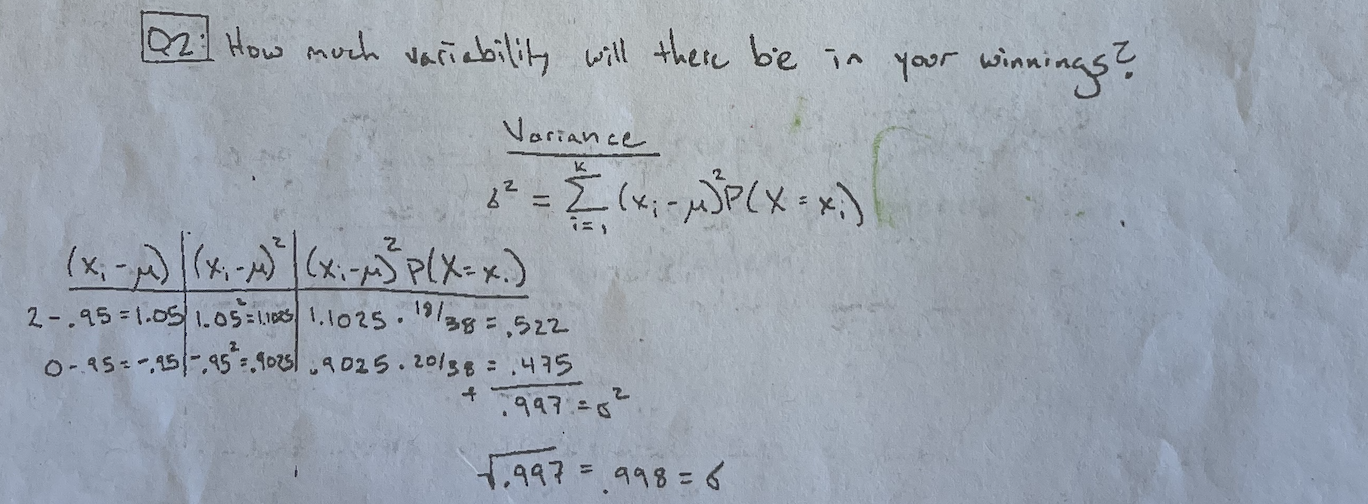 Q2: How much variability will there be in your winnings?
Variance
σ² = Σ (xᵢ - μ)² P(X = xᵢ)
k
i=1
(xᵢ - μ) | (xᵢ - μ)² | (xᵢ - μ)² P(X = xᵢ)
2 - .95 = 1.05 | 1.05² = 1.1025 | 1.1025 · 18/38 = .522
0 - .95 = -.95 | -.95² = .9025 | .9025 · 20/38 = .475
+ .997 = σ²
√.997 = .998 = σ